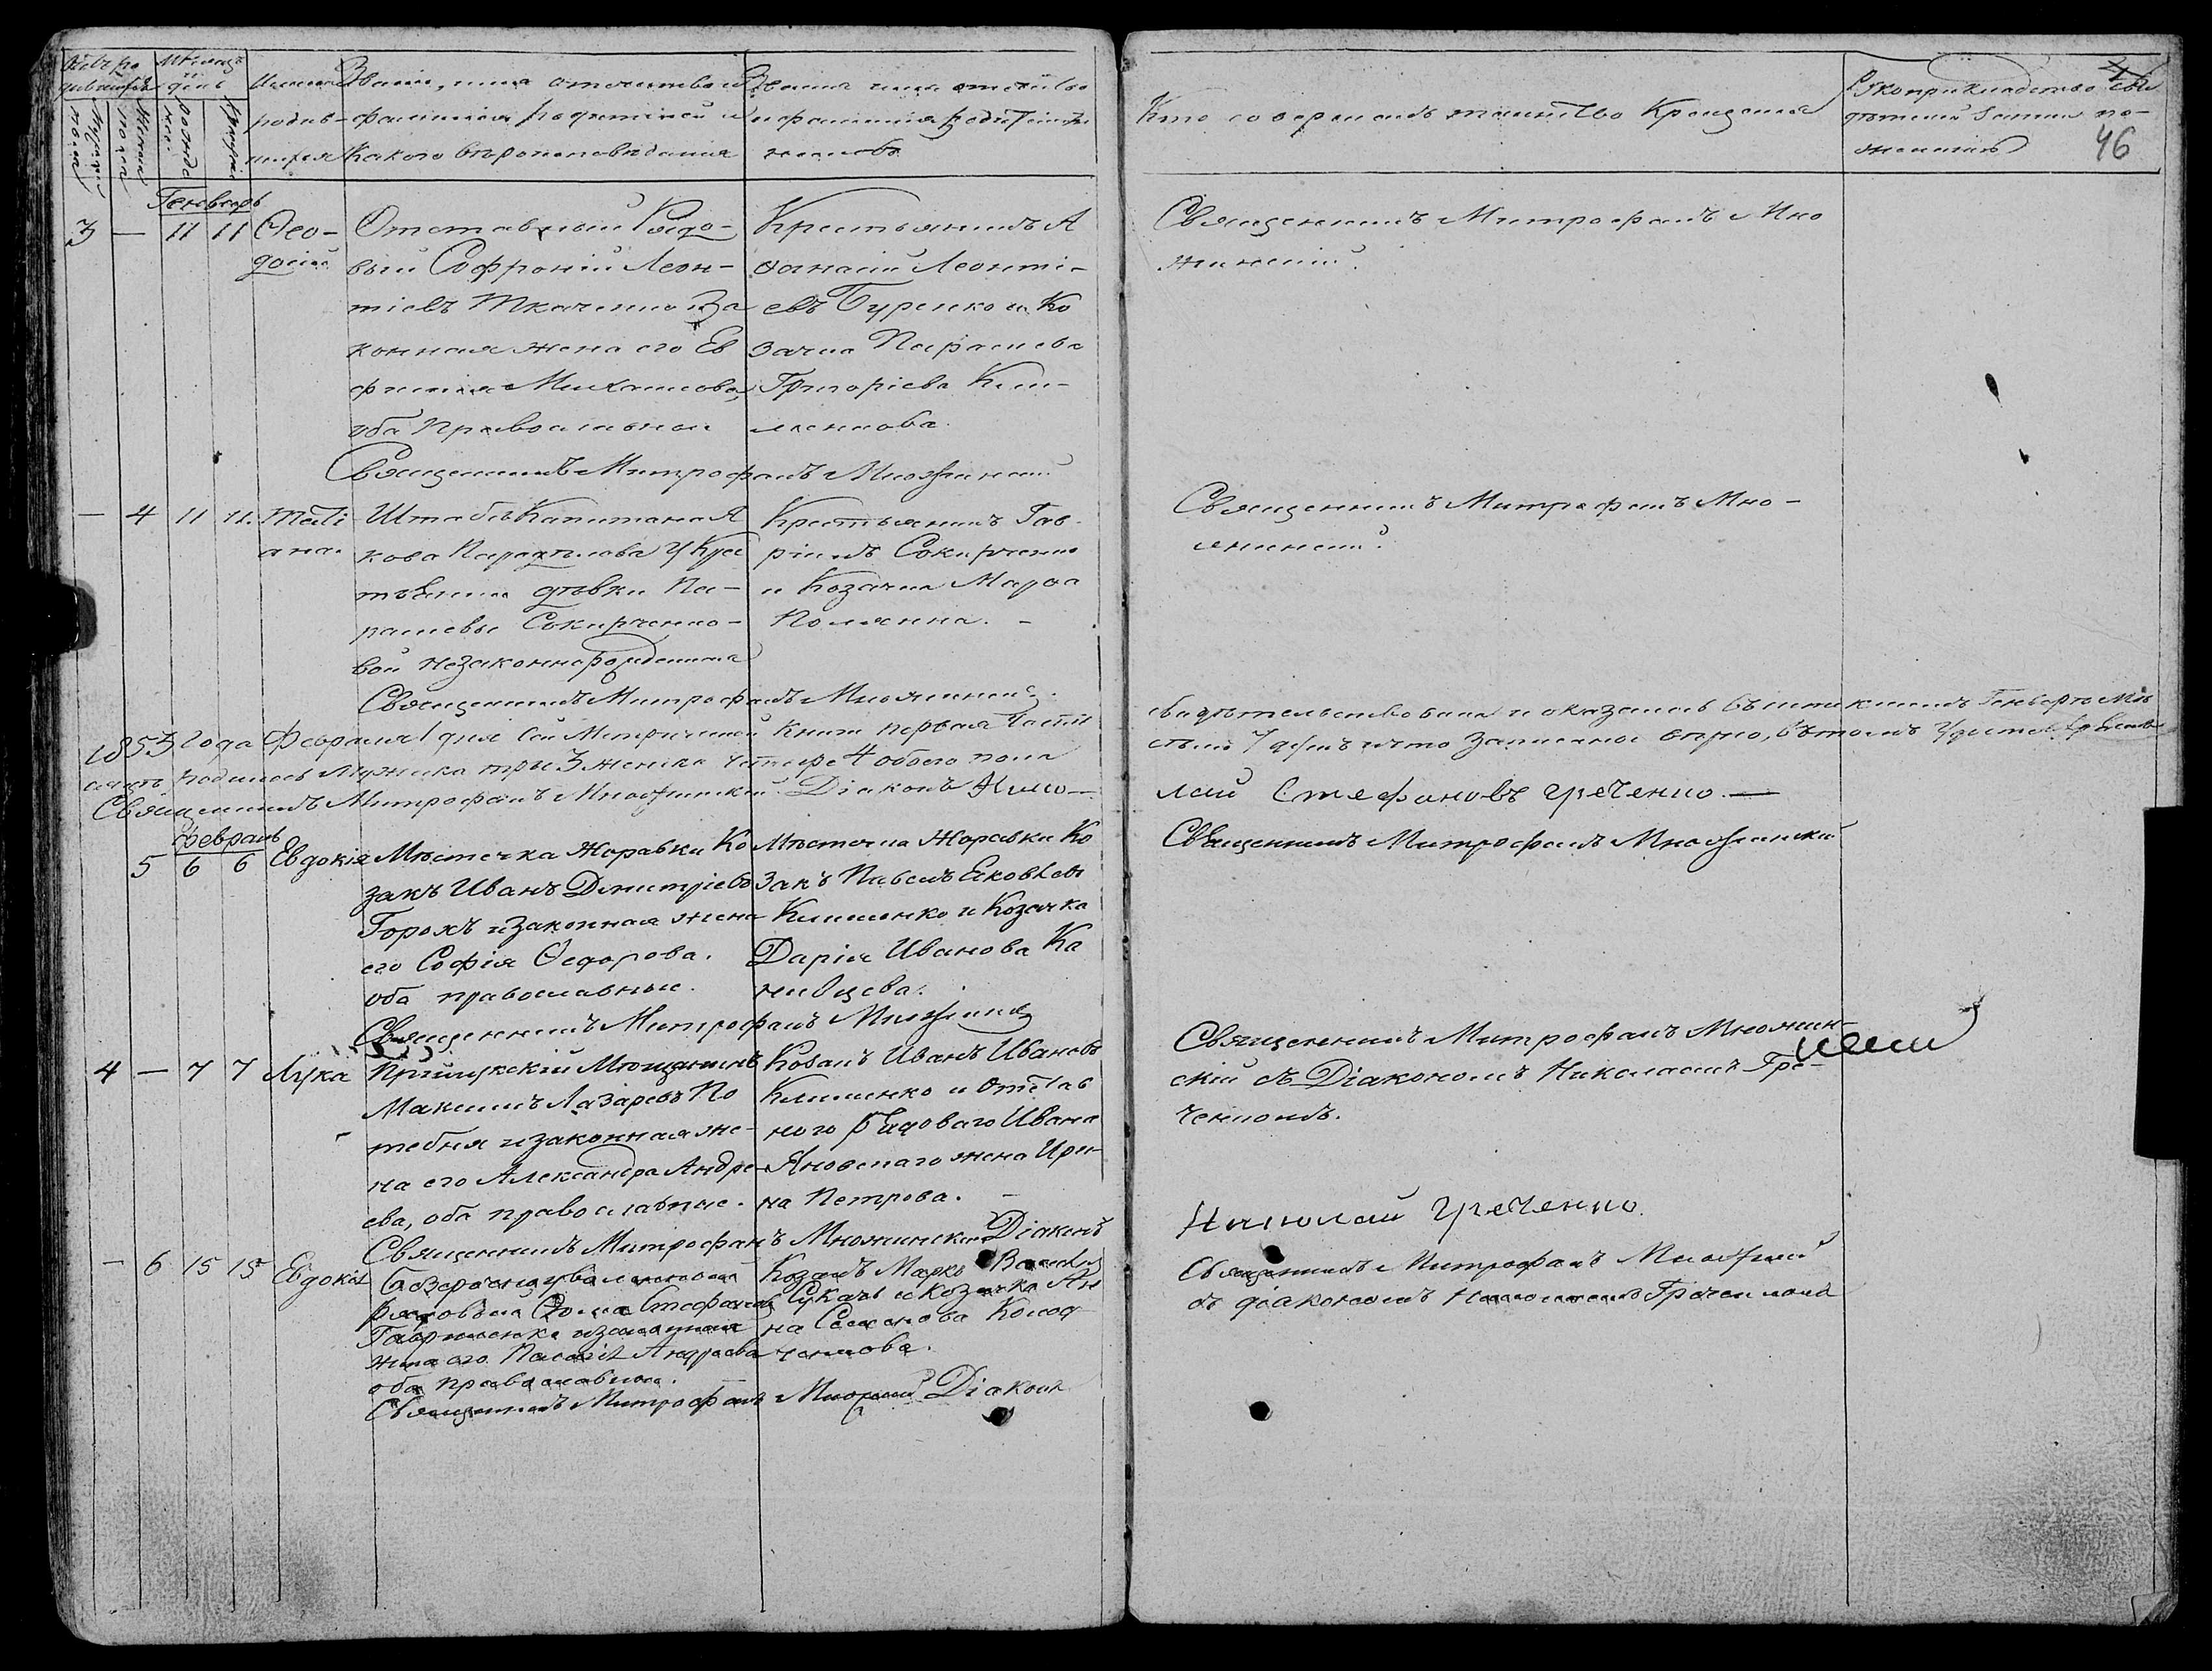 Мѣсяцъ и день
Имена родив-
шихся
Званіе, имя отечество и
фамилія родителей и
какого вѣроисповѣданія
Званіе имя отечество
и фамилія
Кто совершалъ таинство Крещенія
Рукоприкладство сви
дѣтелей записи по
желанію
46
Генварь
3 — 11 11 Ѳео-
досій
Отставный Рядо-
вый Софроній Леон-
тіевъ Ткаченко и За
конная жена его Ев
фимія Михаилова,
оба Православные
Крестьянинъ А
ѳанасій Леонті-
евъ Буренко и Ко
зачка Параскева
Григоріева Кли-
менкова.
Священникъ Митрофанъ Мно
жинскій.
Священникъ Митрофанъ Множинскій
— 4 11 11. Таті
ана.
Штабсъ Капитана Я
кова у Крес
тьянки дѣвки Па-
раскевы Сокирченко-
вой незаконнорожденная
Крестьянинъ Гав-
ріилъ Сокирченко
и Козачка Марѳа
Священникъ Митрофанъ Мно-
жинскій.
Священникъ Митрофанъ Множинскій.
1853 года Февраля 1 дня Сей Метрической Книги первая Часть
свидѣтельствована и оказалось въ Генварѣ мѣ
сяцѣ родилось Мужеска три 3 женска четыре 4 обоего пола
семь 7 душъ и что записаны вѣрно, въ томъ
Священникъ Митрофанъ Множинскій Діаконъ Нико—
лай Стефановъ Греченко.—
Февраль
5 6 6 Евдокія
Мѣстечка Журавки Ко
закъ Иванъ Димитріевъ
Горохъ и законная жена
его Софія Ѳедорова.
оба православные.
Мѣстечка Журавки Ко
закъ Павелъ Яковлевъ
Клименко и Козачка
Дарія Иванова Ка
нивцева.
Священникъ Митрофанъ Множинскій
Священникъ Митрофанъ Множинскій
4 — 7 7 Лука
Прилукскій Мѣщанинъ
Максимъ Лазаревъ По
тебня и законная же-
на его Александра Андре-
ева, оба православные.
Козакъ Иванъ Ивановъ
Клименко и Отстав
ного Рядоваго Ивана
Яновскаго жена Ири-
на Петрова.
Священникъ Митрофанъ Множин-
скій съ Діакономъ Николаемъ Гре-
ченкомъ.
Священникъ Митрофанъ Множинскій Діаконъ
Николай Греченко.
— 6 15 15 Евдокія
рядовый Ѳома Стефановъ
Гавриленко и законная
жена его Пелагія Андреева
оба православные.
Козакъ Марко
Сукачъ и козачка Ан
на Семенова Колод
ченкова.
Священникъ Митрофанъ Множинскій
съ діакономъ Николаемъ Греченкомъ
Священникъ Митрофанъ Множинскій Діаконъ